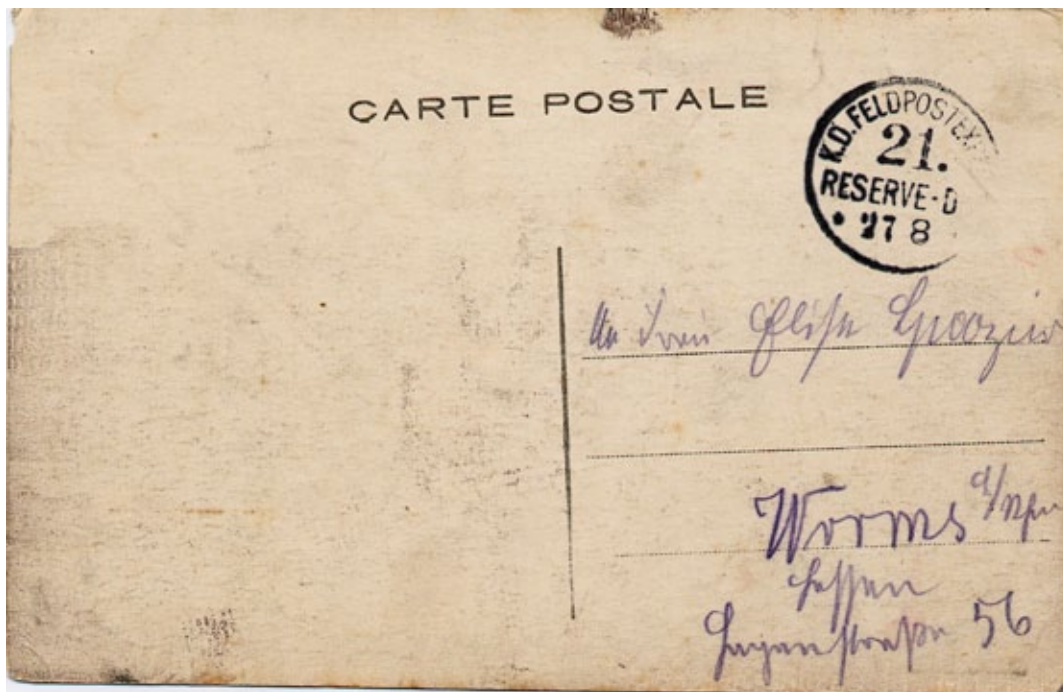 CARTE POSTALE
K.D. FELDPOSTEX
21.
RESERVE-D
* 27 8
An Frau Elise
Worms a/Rhein
Hessen
Hagenstraße 56